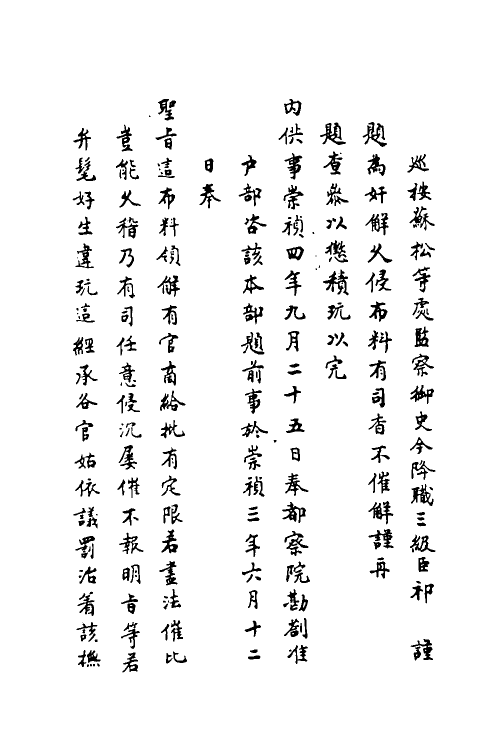 巡按蘇松等處監察御史今降職三級臣祁　謹
題為奸解久侵布料有司杳不催解謹再
題查叅以懲積玩以完
內供事崇禎四年九月二十五日奉都察院勘劄准
戶部咨該本部題前事於崇禎三年六月十二
日奉
聖旨這布料領解有官商給批有定限若盡法催比
豈能久稽乃有司任意侵沉屢催不報明旨等若
弁髦好生違玩這經承各官姑依議罰治着該撫